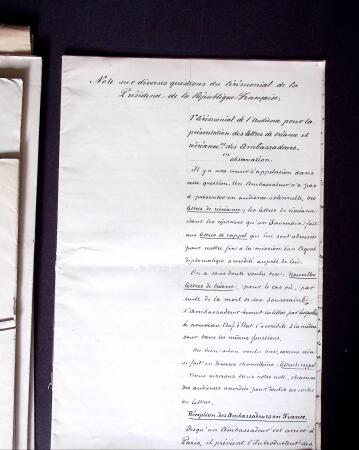 Note sur diverses questions du Cérémonial de la
Présidence de la République Française.
1º Cérémonial de l'Audience pour la
présentation des lettres de créance et
récréance des Ambassadeurs.
observation.
Il y a une erreur d'appellation dans
cette question. Un Ambassadeur n'a pas
à présenter en audience solennelle, des
lettres de récréance; les lettres de récréance
sont les réponses qu'un Souverain fait
aux lettres de rappel qui lui sont adressées
pour mettre fin à la mission d'un Agent
diplomatique accrédité auprès de lui.
On a sans doute voulu dire: Nouvelles
lettres de créance, pour le cas où, par
suite de la mort de son souverain,
l'Ambassadeur remet les lettres par lesquelles
le nouveau Chef d'Etat l'accrédite à la même
cour dans les mêmes fonctions.
Ou bien a-t-on voulu dire, comme cela
se fait en diverses chancelleries: lettres de rappel
Nous aviserons dans notre note, chacune
des audiences accordées pour toutes ces sortes
de lettres.
Réception des Ambassadeurs en France.
Lorsqu'un Ambassadeur est arrivé à
Paris, il prévient l'Introducteur des